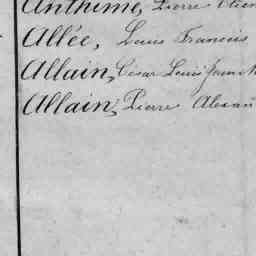 Anthime, Pierre
Allée, Louis Francois
Allain, César Louis
Allain, Pierre Alexan